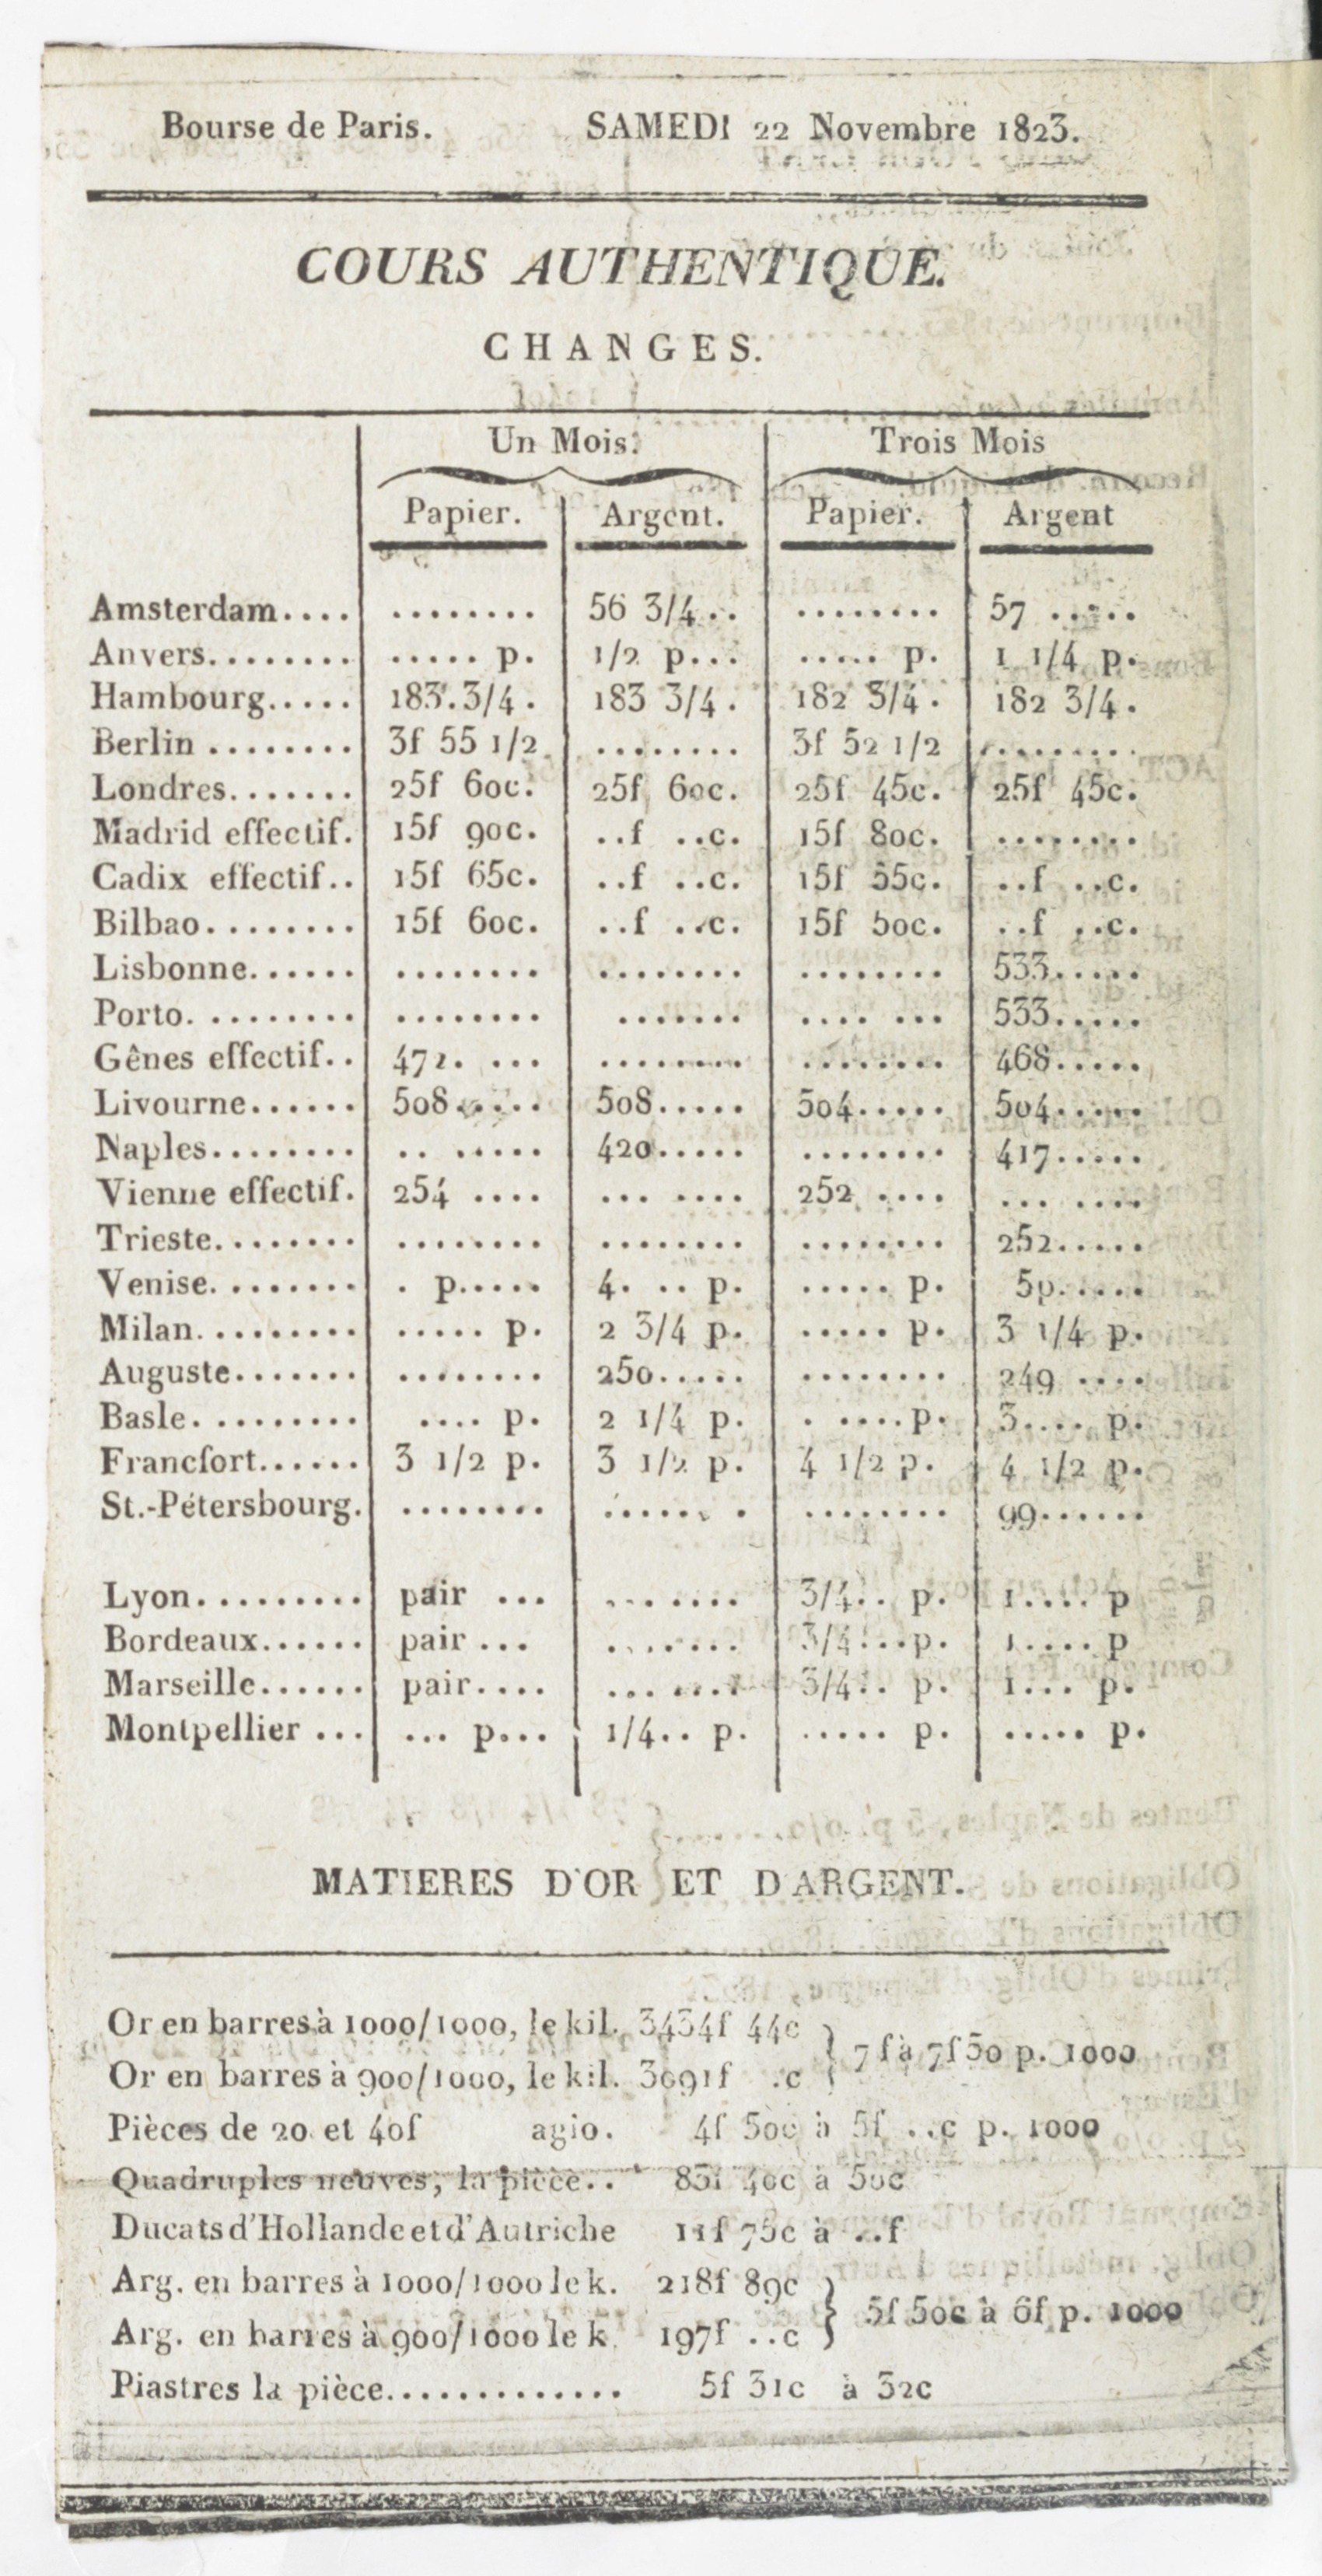 Bourse de Paris. SAMEDI 22 Novembre 1823.
COURS AUTHENTIQUE.
CHANGES.
Un Mois. Trois Mois
Papier. Argent. Papier. Argent
Amsterdam.... ........ 56 3/4.. ........ 57 .....
Anvers........ ..... p. 1/2 p... ..... p. 1 1/4 p.
Hambourg..... 183.3/4. 183 3/4. 182 3/4. 182 3/4.
Berlin ........ 3f 55 1/2. ........ 3f 52 1/2 ........
Londres....... 25f 60c. 25f 60c. 25f 45c. 25f 45c.
Madrid effectif. 15f 90c. ..f ..c. 15f 80c. ........
Cadix effectif.. 15f 65c. ..f ..c. 15f 55c. ..f ..c.
Bilbao........ 15f 60c. ..f ..c. 15f 50c. ..f ..c.
Lisbonne...... ........ ........ ........ 533.....
Porto. ........ ........ ....... .... ... 533.....
Gênes effectif.. 472. ... ........ ........ 468.....
Livourne...... 508..... 508..... 504..... 504.....
Naples........ .. ..... 420..... ........ 417.....
Vienne effectif. 254 .... ... .... 252 .... ... ....
Trieste........ ........ ........ ........ 252.....
Venise. ....... . p..... 4. .. p. ..... p. 5p.....
Milan. ........ ..... p. 2 3/4 p. ..... p. 3 1/4 p.
Auguste....... ........ 250..... ........ 249 ....
Basle. ........ .... p. 2 1/4 p. . ....p. 3.... p.
Francfort...... 3 1/2 p. 3 1/2 p. 4 1/2 p. 4 1/2 p.
St.-Pétersbourg. ........ ...... . ........ 99......
Lyon......... pair ... ... .... 3/4.. p. 1.... p
Bordeaux...... pair ... ....... 3/4...p. 1..... p
Marseille...... pair.... ... .... 3/4.. p. 1... p.
Montpellier ... ... p... 1/4.. p. ..... p. ..... p.
MATIERES D'OR ET D'ARGENT.
Or en barres à 1000/1000, le kil. 3434f 44c
7f à 7f50 p. 1000
Or en barres à 900/1000, le kil. 3091f .c
Pièces de 20 et 40f agio. 4f 50c à 5f ..c p. 1000
Quadruples neuves, la pièce.. 83f 40c à 50c
Ducats d'Hollande et d'Autriche 11f 75c à ..f
Arg. en barres à 1000/1000 le k. 218f 89c
5f 50c à 6f p. 1000
Arg. en barres à 900/1000 le k. 197f ..c
Piastres la pièce.............. 5f 31c à 32c